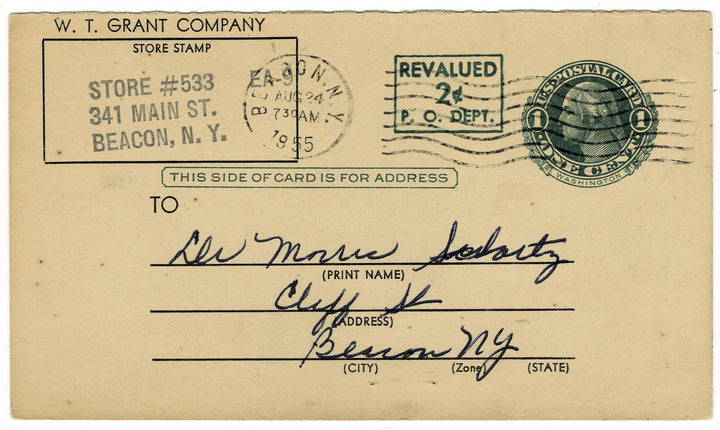 W. T. GRANT COMPANY
STORE STAMP
STORE #533 EA-9
341 MAIN ST.
BEACON, N. Y.
BEACON, N.Y.
AUG 24
730 AM
1955
REVALUED
2¢
P. O. DEPT.
U.S. POSTAL CARD
1 1
ONE CENT
WASHINGTON
THIS SIDE OF CARD IS FOR ADDRESS
TO
Dr Morris Schwartz
(PRINT NAME)
Cliff St
(ADDRESS)
Beacon NY
(CITY) (Zone) (STATE)